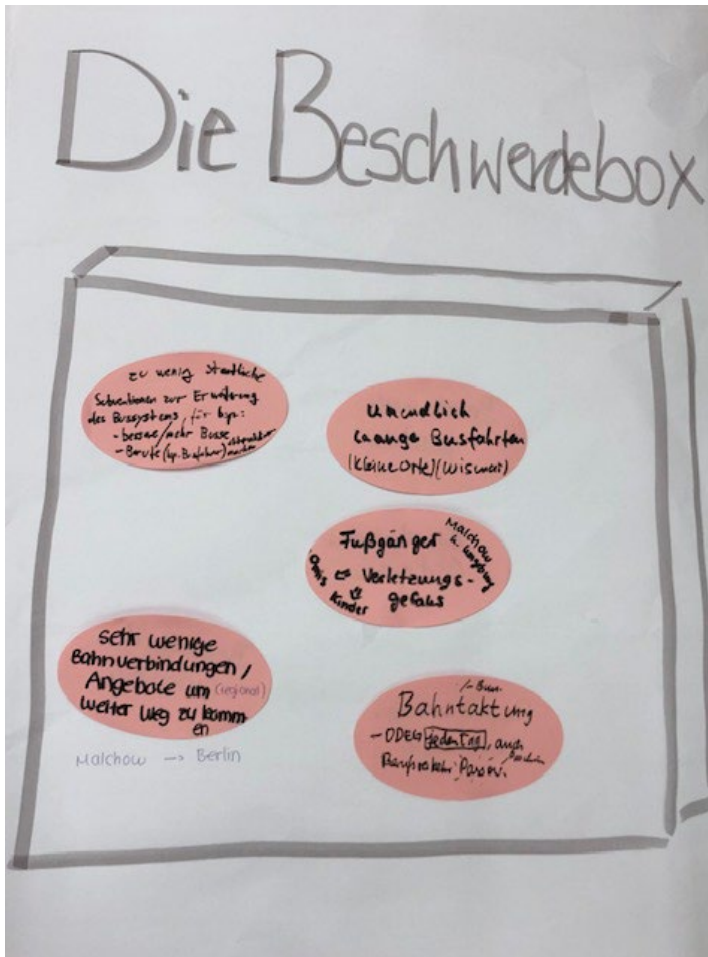 Die Beschwerdebox
zu wenig staatliche
Subventionen zur Erweiterung
des Bussystems, für bsp:
- bessere/mehr Busse
- Berufe (bsp. Busfahrer) attraktiver
machen
Unendlich
laange Busfahrten
(kleine Orte) (Wismar)
Fußgänger
Malchow
u. Umgebung
Omis
Verletzungs-
Kinder
gefahr
sehr wenige
Bahnverbindungen/
Angebote um (regional)
weiter weg zu komm
en
Malchow → Berlin
/- Bus-
Bahntaktung
- ODEG jeden Tag, auch